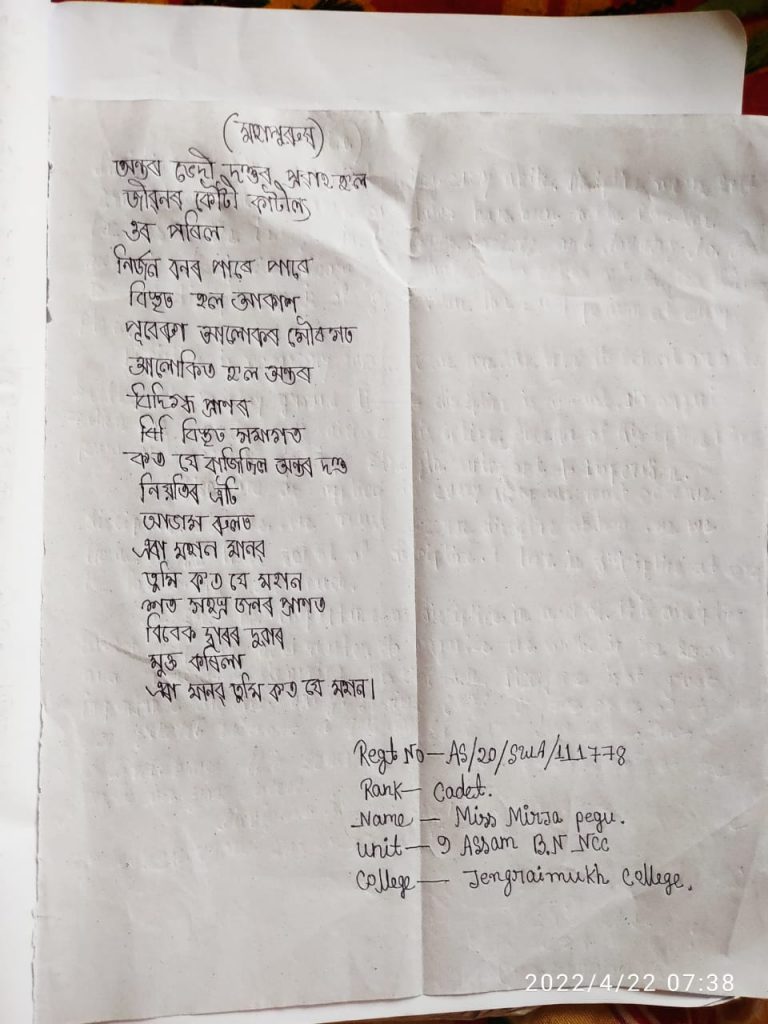 (মহাপুৰুষ)
অন্তৰ ভেদী দ'ন্তৰ প্ৰৱাহ হ'ল
জীৱনৰ কেঁচী কাটীল
ওৰ পৰিল
নিৰ্জন বনৰ পাৰে পাৰে
বিস্তৃত হল আকাশ
আলোকৰ
আলোকিত হ'ল অন্তৰ
প্ৰাণৰ
বিস্তৃত
কত যে অন্তৰ
নিয়তিৰ

এৰা মহান মানৱ
তুমি ক'ত যে মহান
শত সহস্ৰ জনৰ প্ৰাণত
বিবেক দ্বাৰৰ দুৱাৰ
মুক্ত কৰিলা
এৰা মানৱ তুমি ক'ত যে মহান।
Regt No — AS/20/SWA/111778
Rank — Cadet.
Name — Miss Mirja pegu.
Unit — 9 Assam B.N NCC
College — Jengraimukh College.
2022/4/22 07:38